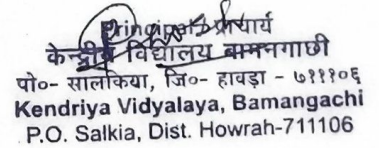 Principal/प्राचार्य
केन्द्रीय विद्यालय बामनगाछी
पो०- सालकिया, जि०- हावड़ा - ७१११०६
Kendriya Vidyalaya, Bamangachi
P.O. Salkia, Dist. Howrah-711106